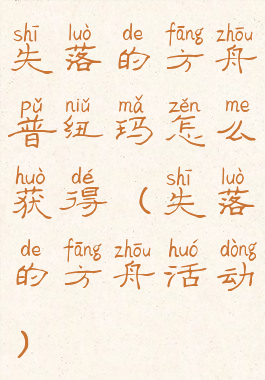 shī luò de fāng zhōu
失落的方舟
pǔ niǔ mǎ zěn me
普纽玛怎么
huò dé shī luò
获得（失落
de fāng zhōu huó dòng
的方舟活动
）